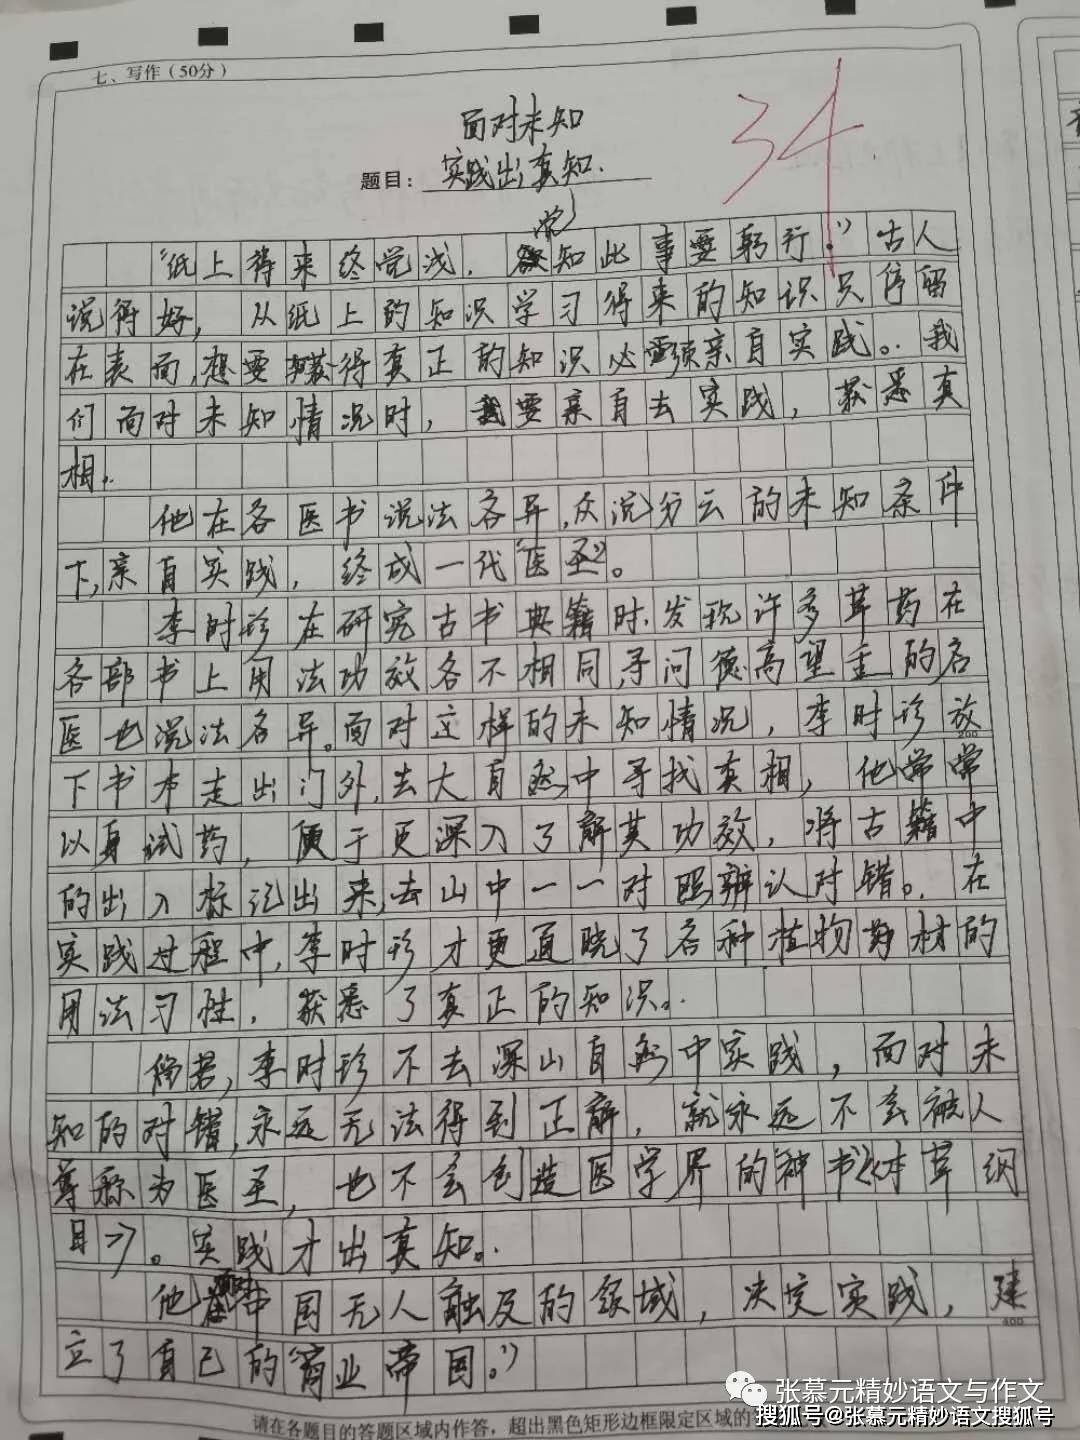 七、写作（50分）
34
面对未知
题目：实践出真知.
“纸上得来终觉浅，觉知此事要躬行。”古人
说得好，从纸上的知识学习得来的知识只停留
在表面,想要获得真正的知识必须亲自实践。我
们面对未知情况时，要亲自去实践，获悉真
相。
他在各医书说法各异,众说分云的未知条件
下,亲自实践，终成一代“医圣”。
李时珍在研究古书典籍时,发现许多草药在
各部书上用法功效各不相同,寻问德高望重的名
医也说法各异。面对这样的未知情况，李时珍放
200
下书本走出门外,去大自然中寻找真相，他常常
以身试药，便于更深入了解其功效，将古籍中
的出入标记出来,去山中一一对照辨认对错。在
实践过程中,李时珍才更通晓了各种植物药材的
用法习性，获悉了真正的知识。
倘若,李时珍不去深山自然中实践，面对未
知的对错,永远无法得到正解，就永远不会被人
尊称为医圣，也不会创造医学界的“神书《本草纲
目》”。实践才出真知。
他在中国无人触及的领域，决定实践，建
400
立了自己的“商业帝国。”
请在各题目的答题区域内作答，超出黑色矩形边框限定区域的答
张慕元精妙语文与作文
搜狐号@张慕元精妙语文搜狐号